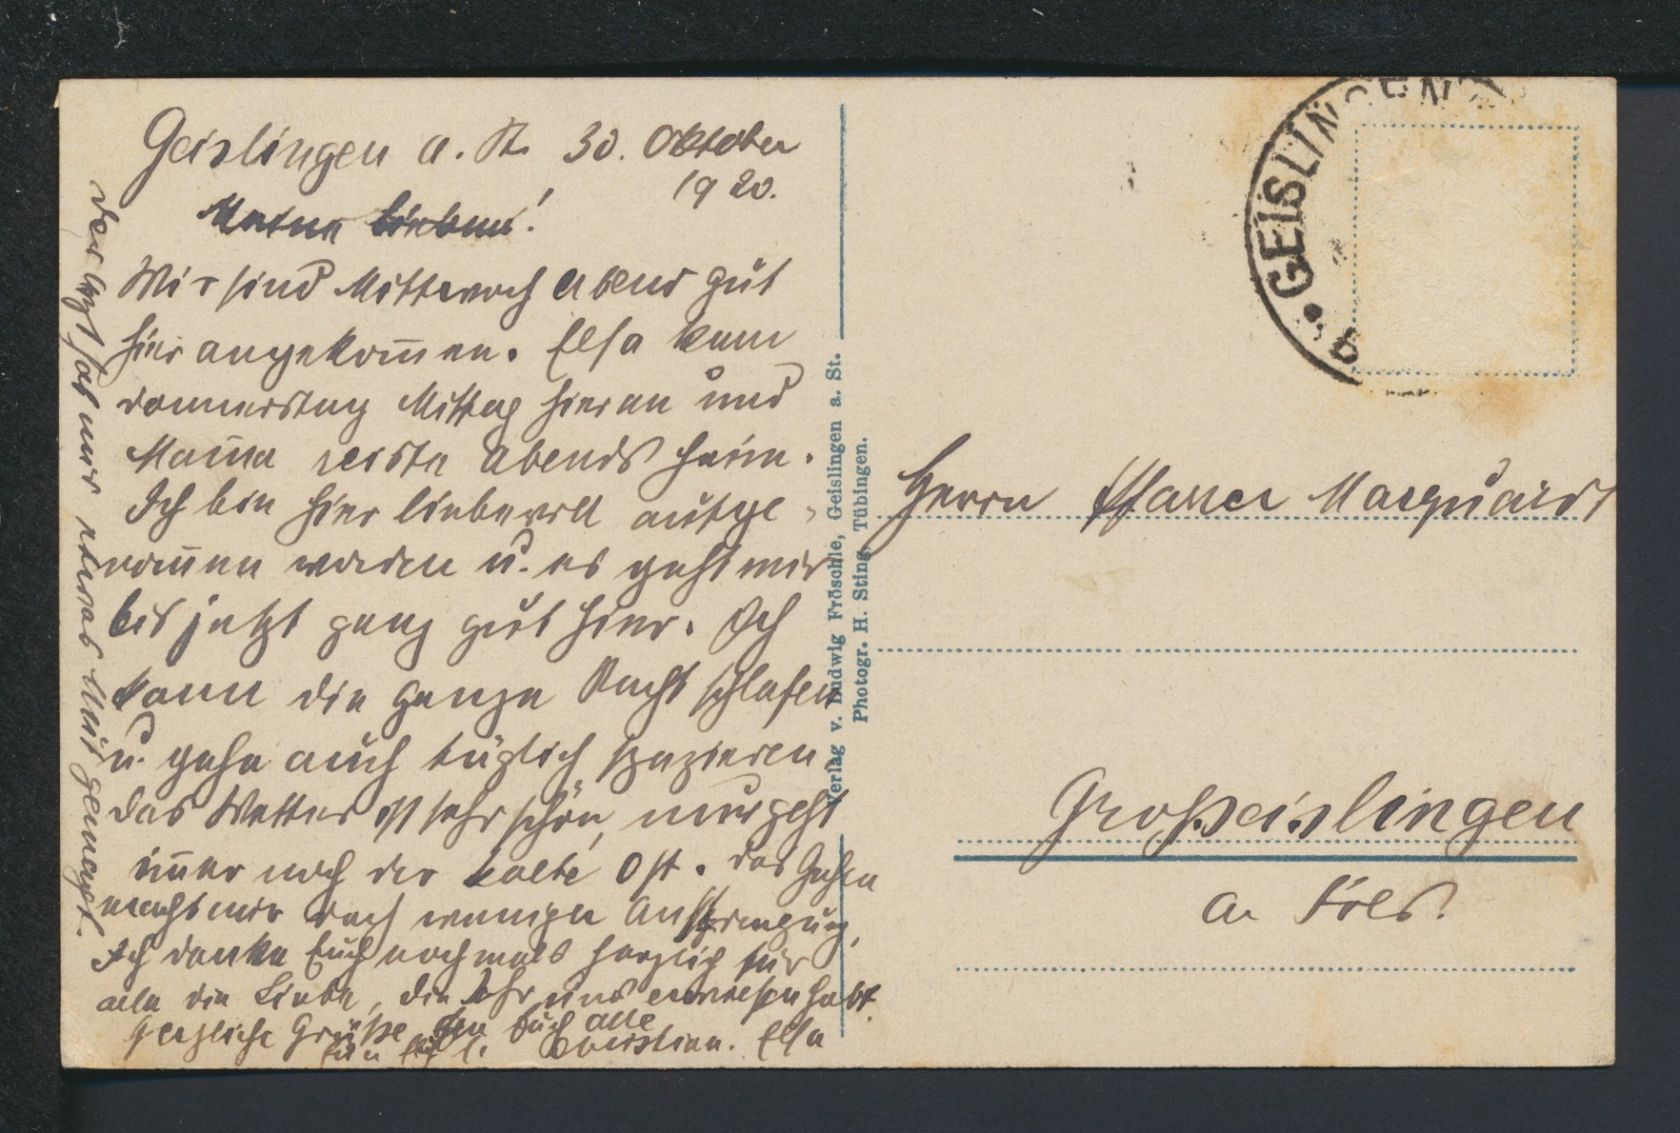 Geislingen a. St. 30. Oktober
1920.
Meine Lieben!
Wir sind Mittwoch Abend gut
hier angekom̄en. Elsa kam
Donnerstag Mittag hier an und
Mam̄a reiste Abends heim.
Ich bin hier liebevoll aufge-
nom̄en worden u. es geht mir
bis jetzt ganz gut hier. Ich
kann die ganze Nacht schlafen
u. gehe auch täglich spazieren
das Wetter ist sehr schön, nur geht
im̄er noch der kalte Ost. Das Gehen
macht mir doch weniger Anstrengung,
Ich danke Euch nochmals herzlich für
alle die Liebe, die Ihr uns erwiesen habt.
Herzliche Grüße an Euch alle
Christian. Elsa
Der Arzt hat mir etwas Mut gemacht.
Verlag v. Ludwig Fröschle, Geislingen a. St.
Photogr. H. Sting, Tübingen.
GEISLINGEN
Herrn Pfarrer Marquardt
Großeislingen
a. Fils.